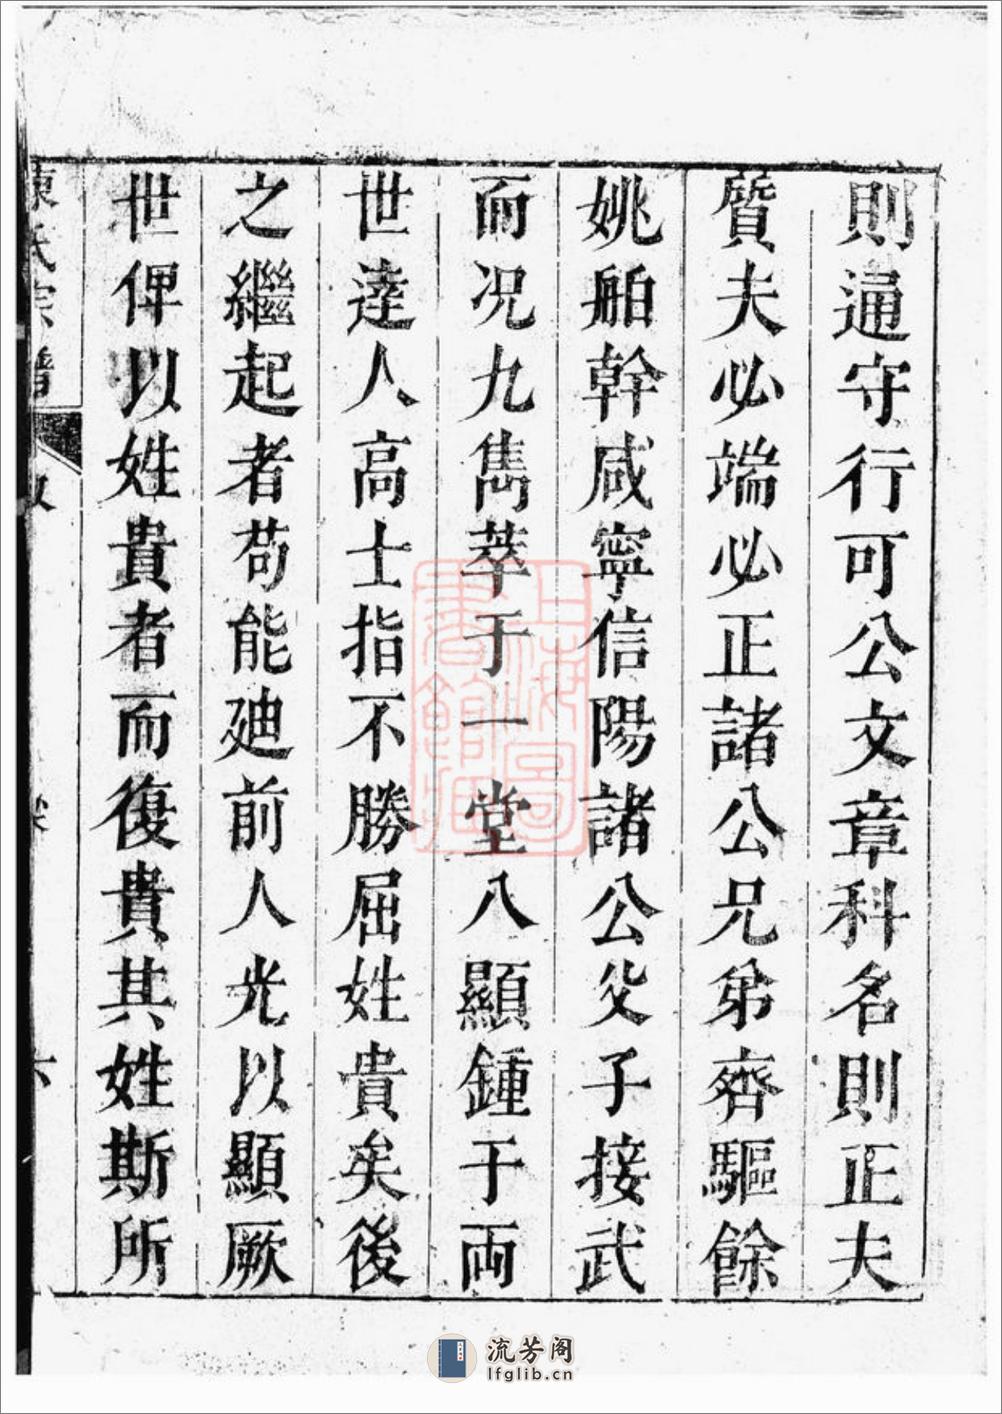 則通守行可公文章科名則正夫
質夫必端必正諸公兄弟齊驅餘
姚舶幹咸寧信陽諸公父子接武
而况九雋萃于一堂八顯鍾于両
世逹人高士指不勝屈姓貴矣後
之繼起者苟能廸前人光以顯厥
世俾以姓貴者而復貴其姓斯所
氏宗譜
六
上海圖
書館藏
流芳阁
lfglib.cn